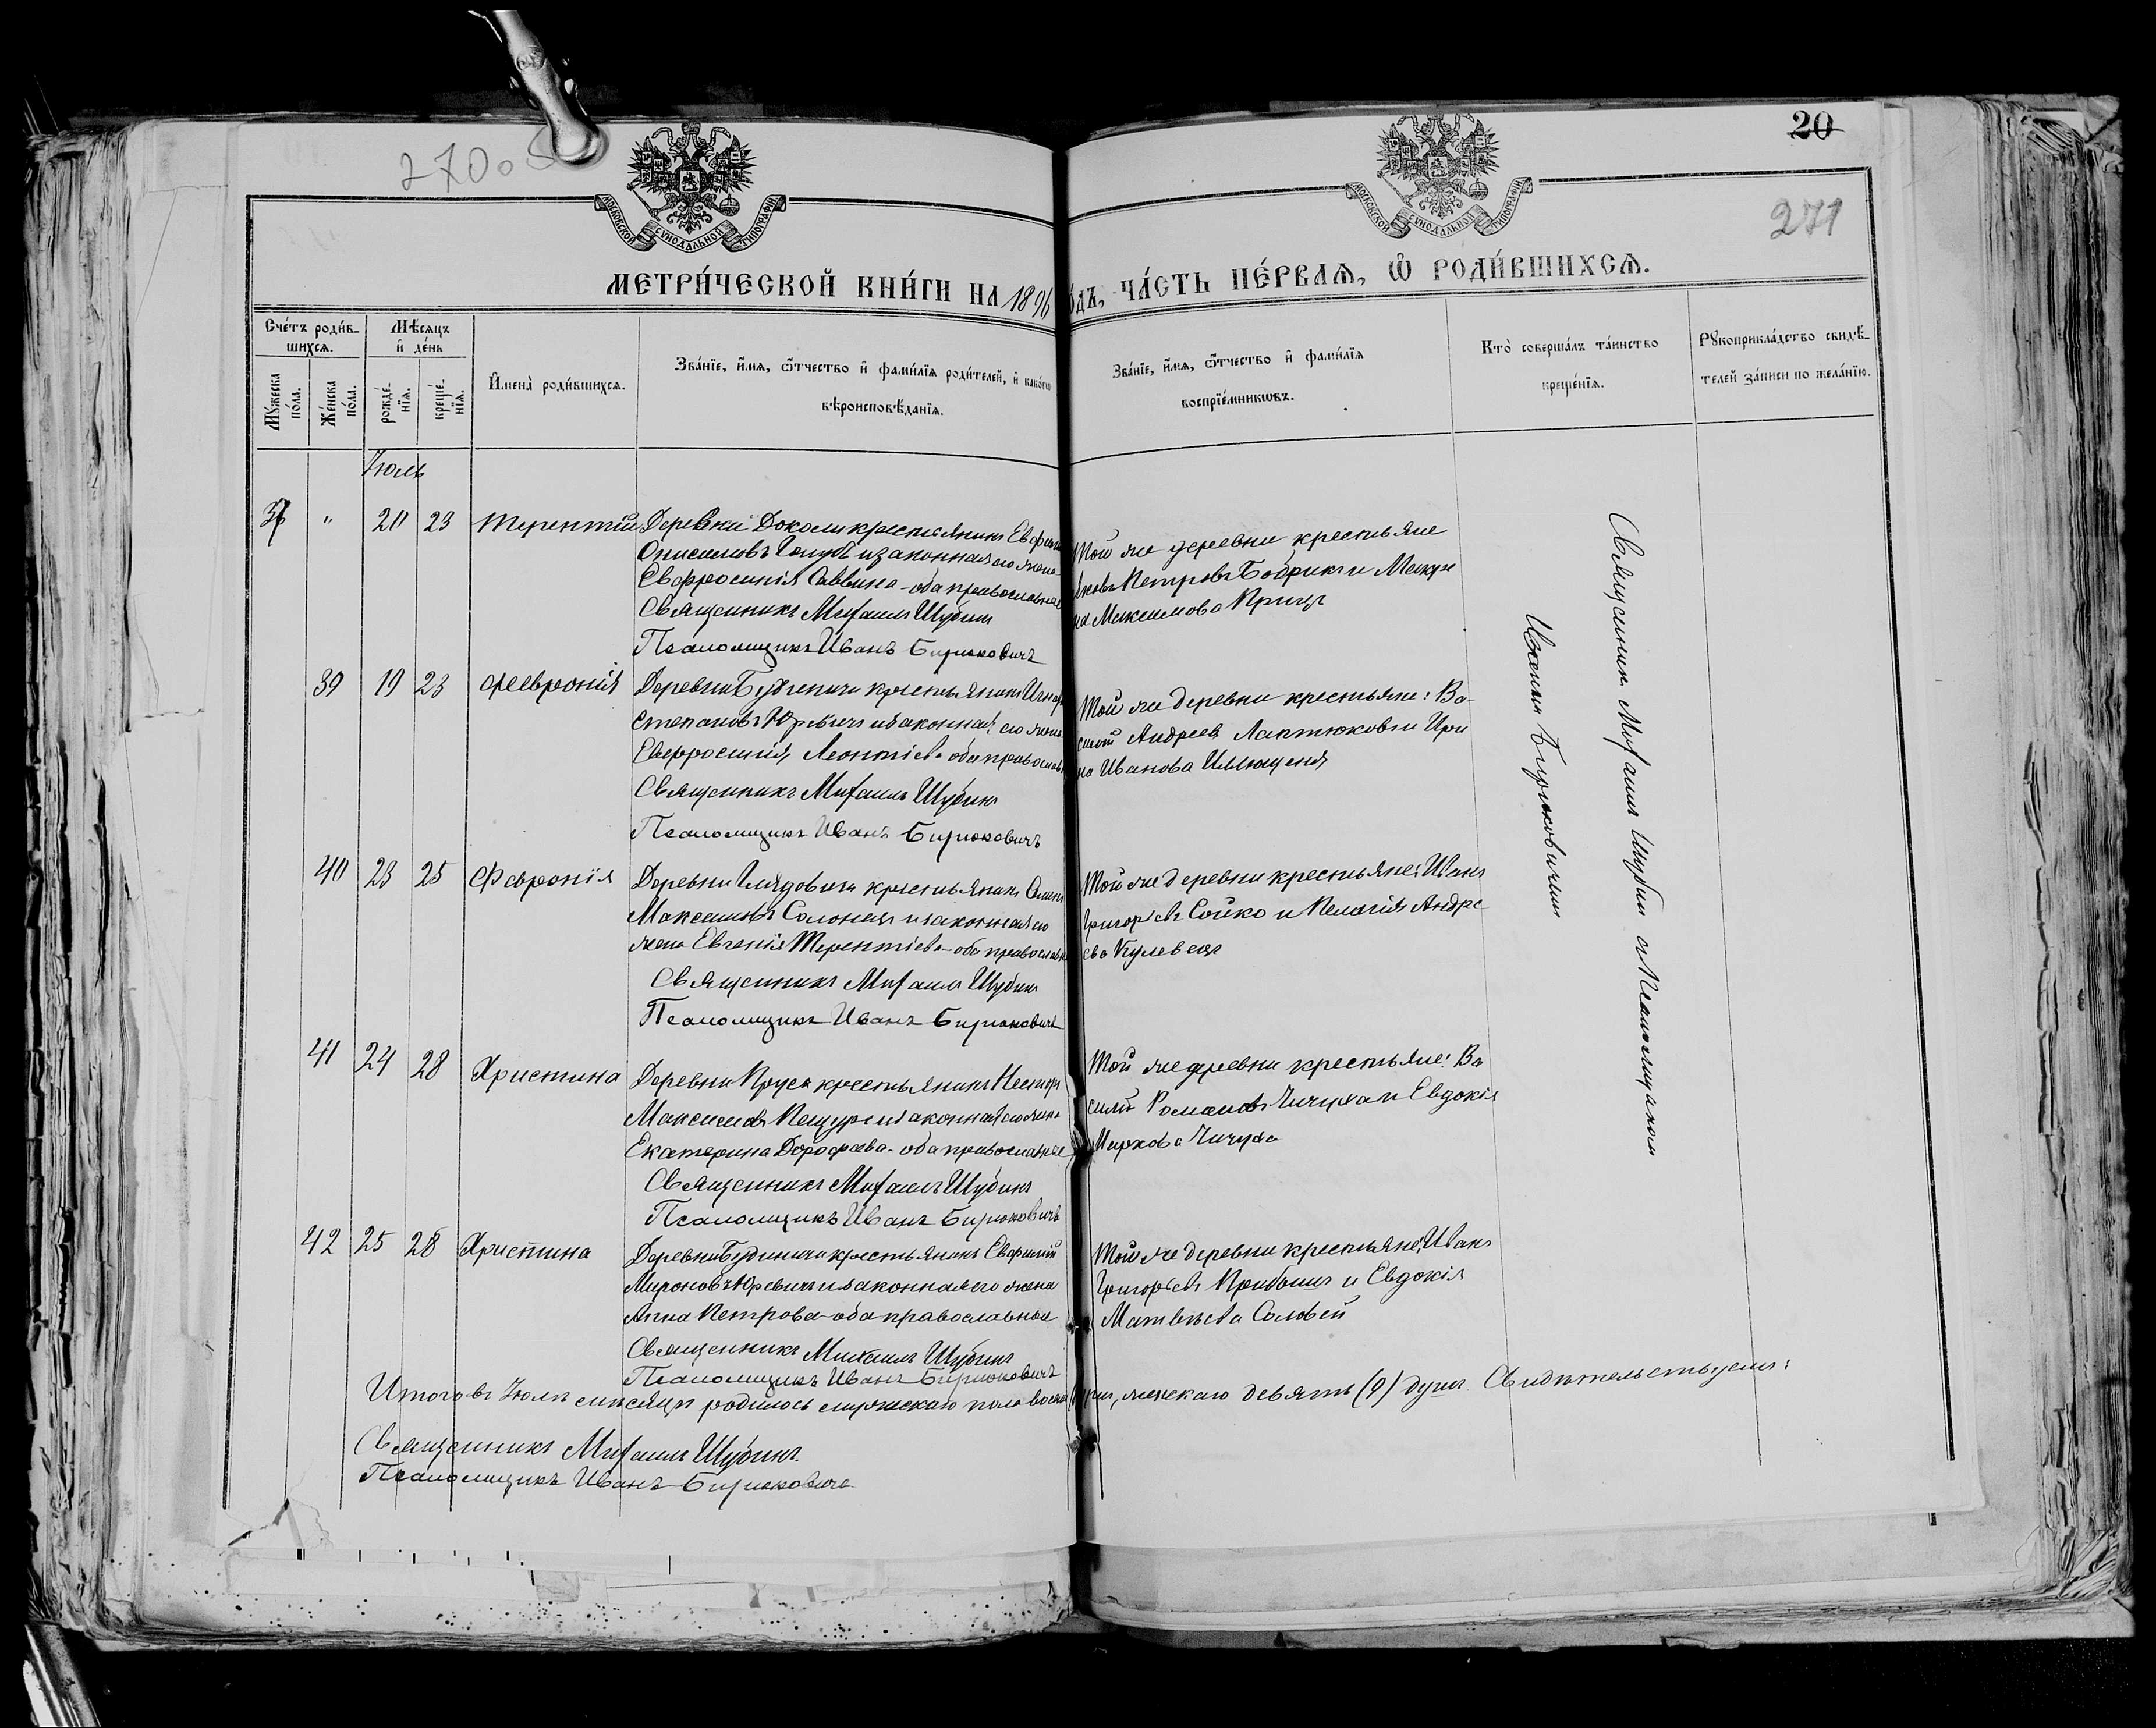 20
270 об
271
МОСКОВСКОЙ СѴНОДАЛЬНОЙ ТИПОГРАФІИ
МОСКОВСКОЙ СѴНОДАЛЬНОЙ ТИПОГРАФІИ
МЕТРИ́ЧЕСКОЙ КНИ́ГИ НА 1896 го́дъ, ЧА́СТЬ ПЕ́РВАѦ, Ѽ РОДИ́ВШИХСѦ.
Сче́тъ роди́в-
шихсѧ.
Мꙋ́жеска по́ла.
Же́нска по́ла.
Мѣ́сѧцъ
и҆ де́нь
рожде́-
нїѧ.
креще́-
нїѧ.
И҆мена̀ роди́вшихсѧ.
Зва́нїе, и҆́мѧ, ѻ҆́тчество и҆ фами́лїѧ роди́телей, и҆ како́гѡ
вѣроисповѣ́данїѧ.
Зва́нїе, и҆́мѧ, ѻ҆́тчество и҆ фами́лїѧ
воспрїе́мникѡвъ.
Кто̀ соверша́лъ та́инство
креще́нїѧ.
Рꙋкоприкла́дство свидѣ́-
телей за́писи по жела́нїю.
Іюль
" 20 23 Терентій Деревни крестьянинъ
Голубъ и законная его жена
Евфросинія Саввина - оба православные
Священникъ Михаилъ Шубинъ
Псаломщикъ Иванъ Бирюковичъ
Той же деревни крестьяне
Яковъ Петровъ Бобрикъ и
на Максимова
39 19 23 Феврония Деревни крестьянинъ
Степановъ Юревичъ и законная его жена
Евфросинія Леонтіева оба православн
Священникъ Михаилъ Шубинъ
Псаломщикъ Иванъ Бирюковичъ
Той же деревни крестьяне: Ва-
силій Андреевъ Лаптюковъ и Ири
на Иванова
40 23 25 Февронія Деревни крестьянинъ
Максимовъ и законная его
жена Евгенія Терентіева - оба православн
Священникъ Михаилъ Шубинъ
Псаломщикъ Иванъ Бирюковичъ
Той же деревни крестьяне: Иванъ
Григорьевъ Сойко и Пелагія Андре
ева
41 24 28 Христина Деревни крестьянинъ Несторъ
Максимовъ и законная его жена
Екатерина Дорофеева - оба православные
Священникъ Михаилъ Шубинъ
Псаломщикъ Иванъ Бирюковичъ
Той же деревни крестьяне: Ва
силій Романовъ Чичуха и Евдокія
Маркова Чичуха
42 25 28 Христина Деревни крестьянинъ Евфимій
Мироновъ Юревичъ и законная его жена
Анна Петрова - оба православные
Священникъ Михаилъ Шубинъ
Псаломщикъ Иванъ Бирюковичъ
Той же деревни крестьяне: Иванъ
Григорьевъ и Евдокія
Матвѣева Соловей
Священникъ Михаилъ Шубинъ съ Псаломщикомъ
Иваномъ Бирюковичемъ
Итого въ Іюлѣ мѣсяцѣ родилось мужескаго пола восемь женскаго девять (9) душъ. Свидѣтельствуемъ:
Священникъ Михаилъ Шубинъ.
Псаломщикъ Иванъ Бирюковичъ